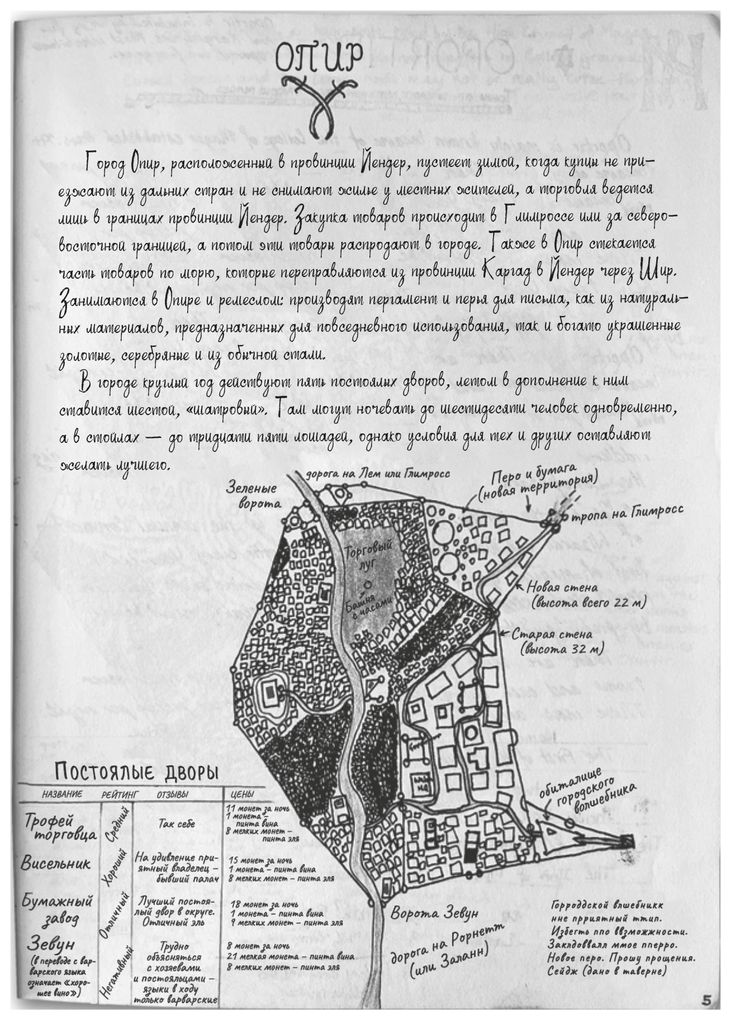 ОПИР
Город Опир, расположенный в провинции Йендер, пустеет зимой, когда купцы не при-
езжают из дальних стран и не снимают жилье у местных жителей, а торговля ведется
лишь в границах провинции Йендер. Закупка товаров происходит в Глимроссе или за северо-
восточной границей, а потом эти товары распродают в городе. Также в Опир стекается
часть товаров по морю, которые переправляются из провинции Каргад в Йендер через Шир.
Занимаются в Опире и ремеслом: производят пергамент и перья для письма, как из натураль-
ных материалов, предназначенных для повседневного использования, так и богато украшенные
золотые, серебряные и из обычной стали.
В городе круглый год действуют пять постоялых дворов, летом в дополнение к ним
ставится шестой, «шатровый». Там могут ночевать до шестидесяти человек одновременно,
а в стойлах — до тридцати пяти лошадей, однако условия для тех и других оставляют
желать лучшего.
дорога на Лем или Глимросс
Зеленые
ворота
Перо и бумага
(новая территория)
тропа на Глимросс
Торговый
луг
Башня
с часами
Новая стена
(высота всего 22 м)
Старая стена
(высота 32 м)
обиталище
городского
волшебника
Ворота Зевун
дорога на Рорнетт
(или Заланн)
Постоялые дворы
НАЗВАНИЕ РЕЙТИНГ ОТЗЫВЫ ЦЕНЫ
Трофей
торговца
Средний
Так себе
11 монет за ночь
1 монета –
пинта вина
8 мелких монет –
пинта эля
Висельник
Хороший
На удивление при-
ятный владелец –
бывший палач
15 монет за ночь
1 монета – пинта вина
8 мелких монет – пинта эля
Бумажный
завод
Отличный
Лучший постоя-
лый двор в округе.
Отличный эль
18 монет за ночь
1 монета – пинта вина
9 мелких монет – пинта эля
Зевун
(в переводе с вар-
варского языка
означает «хоро-
шее вино»)
Негативный
Трудно
объясняться
с хозяевами
и постояльцами –
языки в ходу
только варварские
8 монет за ночь
21 мелкая монета – пинта вина
8 мелких монет – пинта эля
Горроддской влшебникк
нне пррриятный ттип.
Избегть ппо ввзможжности.
Закллдоввалл ммое пперро.
Новое перо. Прошу прощения.
Сейдж (дано в таверне)
5